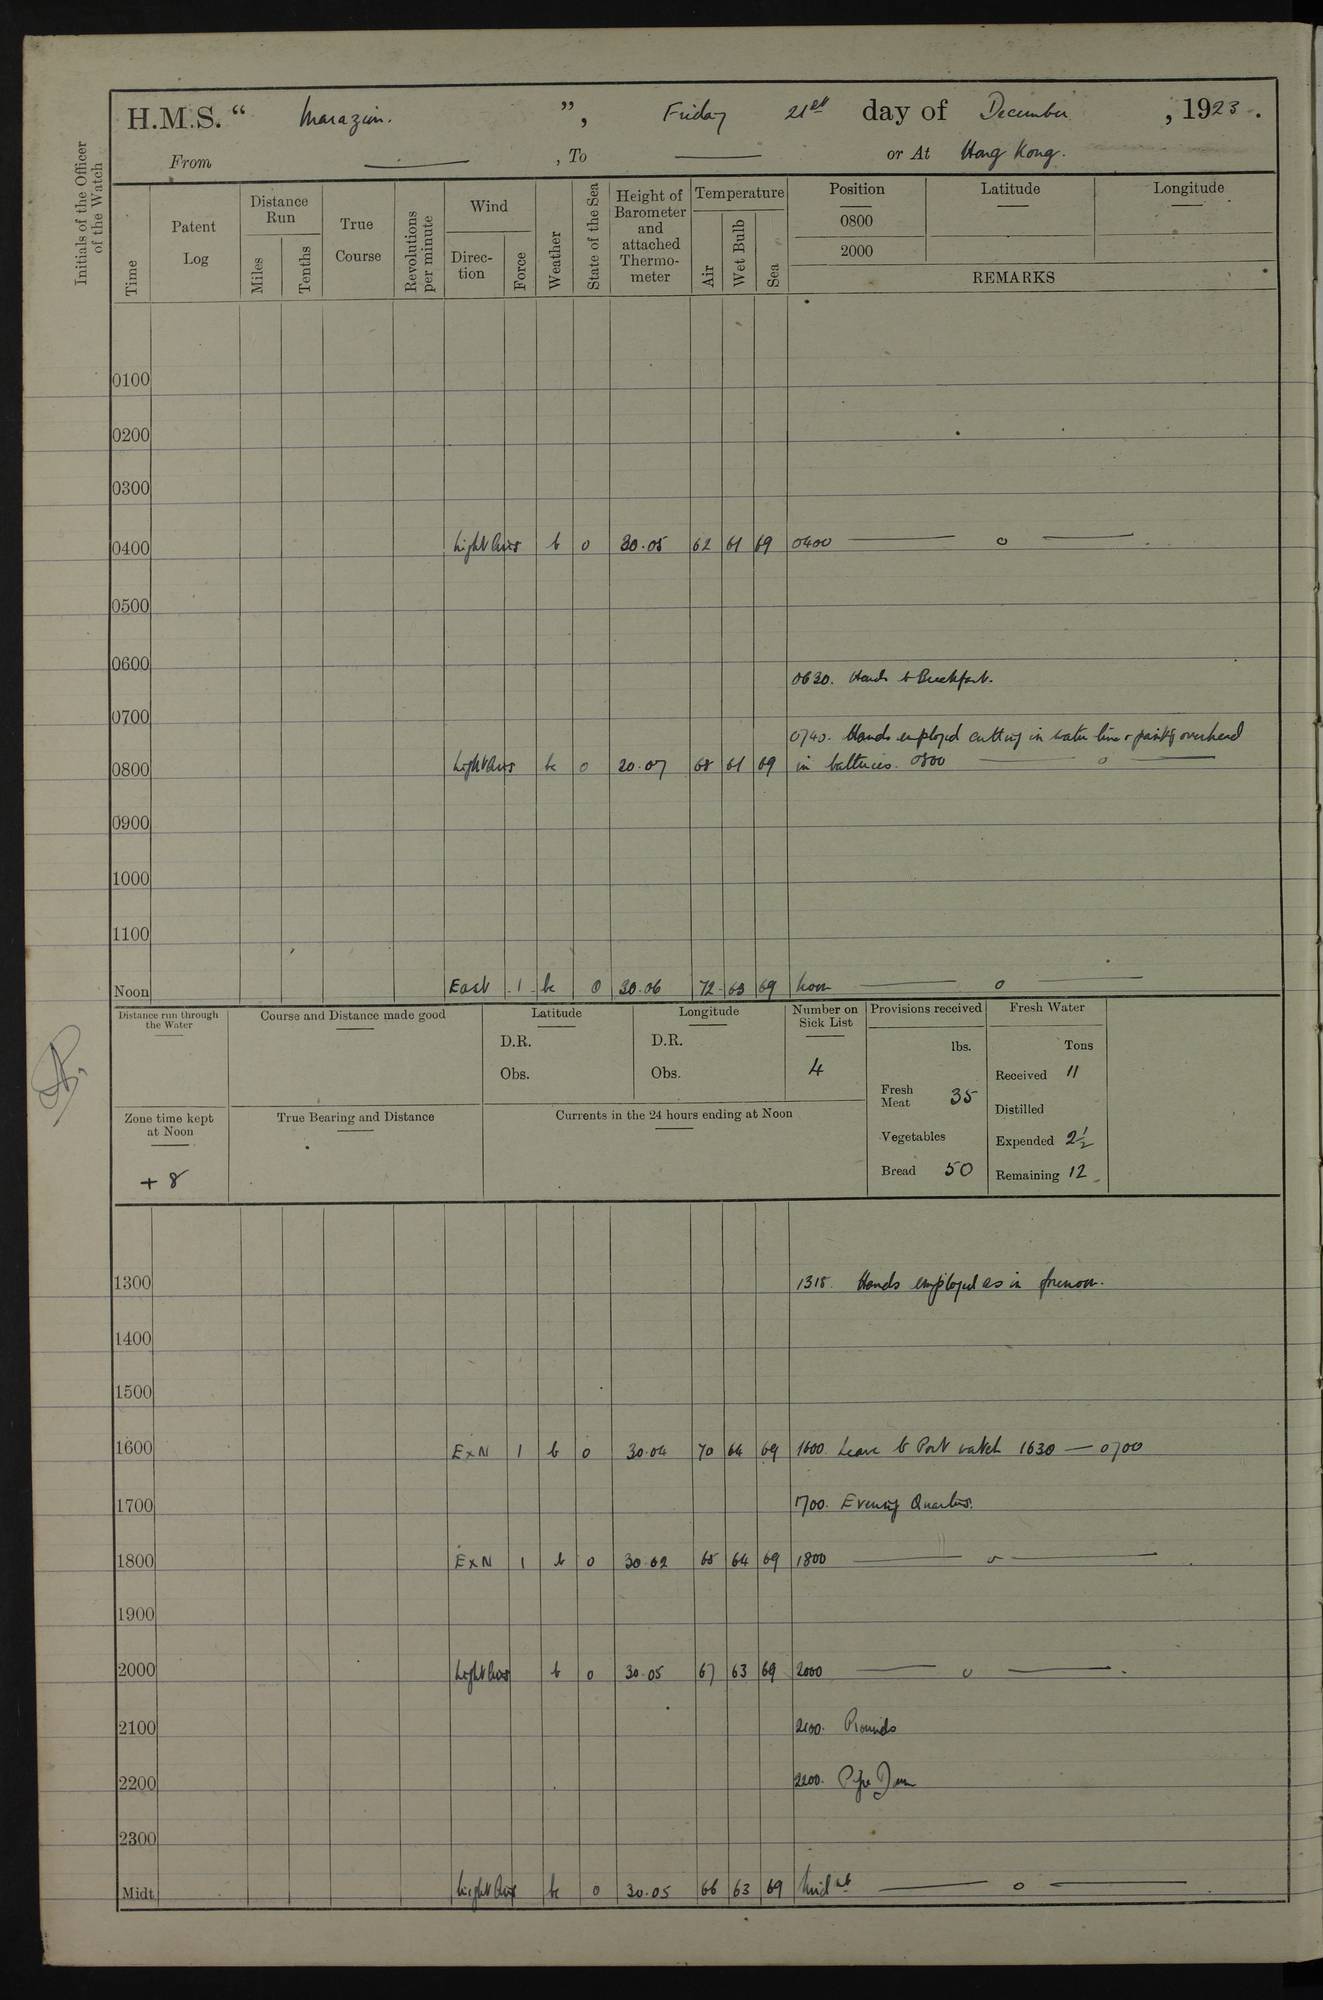 H.M.S. “ Marazion. ”, Friday 21st day of December, 1923.
From , To or At Hong Kong.
Initials of the Officer of the Watch
Time
Patent Log
Distance Run
Miles
Tenths
True Course
Revolutions per minute
Wind
Direction
Force
Weather
State of the Sea
Height of Barometer and attached Thermometer
Temperature
Air
Wet Bulb
Sea
Position Latitude Longitude
0800
2000
REMARKS
0100
0200
0300
0400 Light Airs b 0 30.05 62 61 69 0400 — o —
0500
0600
0630. Hands to Breakfast.
0700
0740. Hands employed cutting in water line & paintg overhead
0800 Light Airs bc 0 30.07 68 61 69 in batteries. 0800 — o —
0900
1000
1100
Noon East 1 bc 0 30.06 72 63 69 Noon — o —
Distance run through the Water
Course and Distance made good
Latitude
D.R.
Obs.
Longitude
D.R.
Obs.
Number on Sick List
4
Provisions received
lbs.
Fresh Meat 35
Vegetables
Bread 50
Fresh Water
Tons
Received 11
Distilled
Expended 2½
Remaining 12
Zone time kept at Noon
+ 8
True Bearing and Distance
Currents in the 24 hours ending at Noon
1300 1315. Hands employed as in forenoon.
1400
1500
1600 E x N 1 b 0 30.04 70 64 69 1600 Leave to Port watch 1630 — 0700
1700 1700. Evening Quarters.
1800 E x N 1 b 0 30.02 65 64 69 1800 — o —
1900
2000 Light Airs b 0 30.05 67 63 69 2000 — o —
2100 2100. Rounds
2200 2200. Pipe Down
2300
Midt. Light Airs bc 0 30.05 66 63 69 Midnt — o —